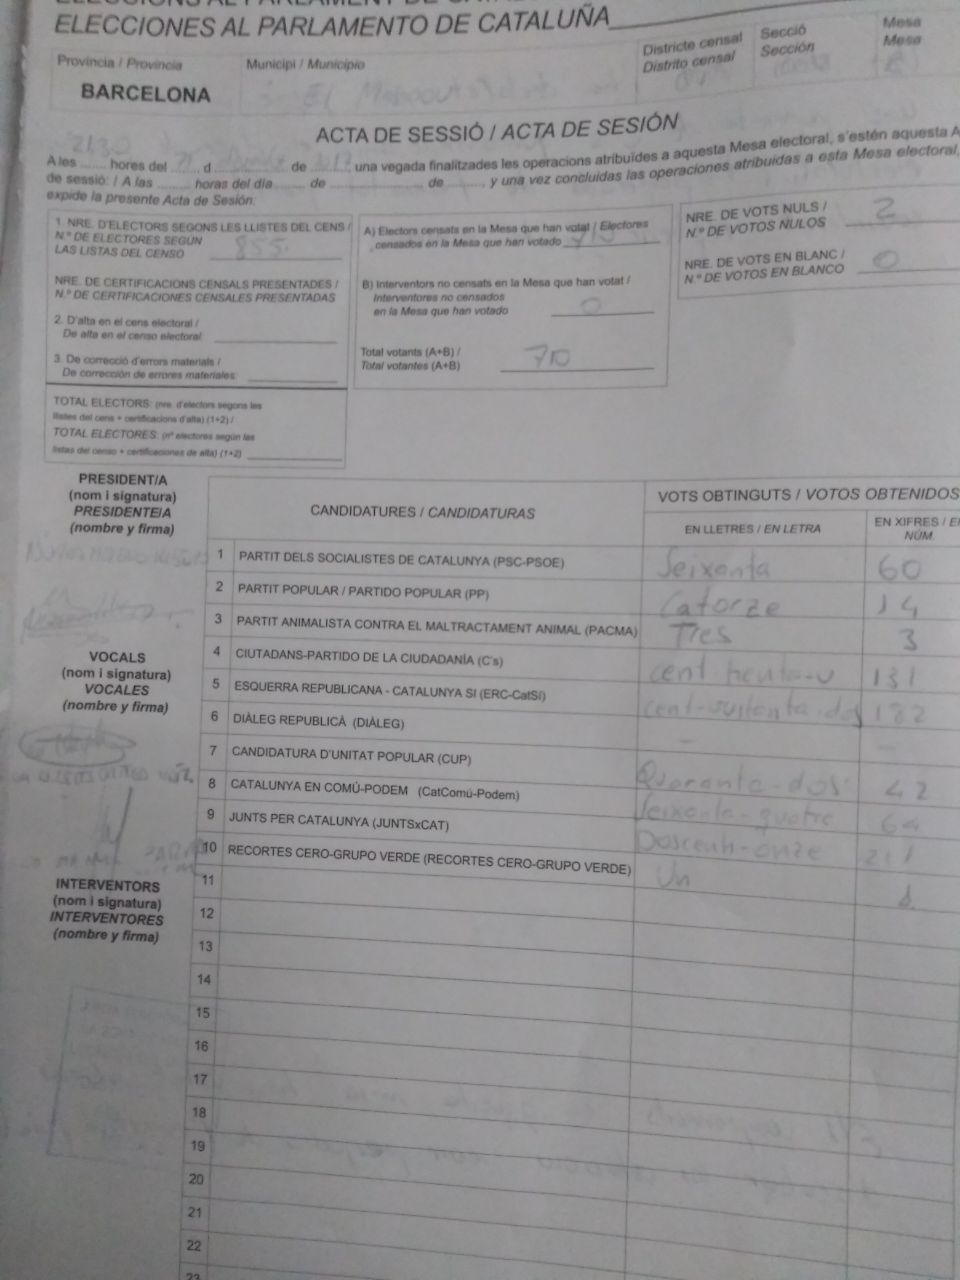 ELECCIONES AL PARLAMENTO DE CATALUÑA
Província / Provincia
BARCELONA
Municipi / Municipio
El
Districte censal
Distrito censal
Secció
Sección
Mesa
Mesa
B
ACTA DE SESSIÓ / ACTA DE SESIÓN
2130
A les ........ hores del ...... d ................ de ........ una vegada finalitzades les operacions atribuïdes a aquesta Mesa electoral, s'estén aquesta A
de sessió: / A las ......... horas del día ........ de ........................ de .........., y una vez concluidas las operaciones atribuidas a esta Mesa electoral,
expide la presente Acta de Sesión:
1. NRE. D'ELECTORS SEGONS LES LLISTES DEL CENS /
N.º DE ELECTORES SEGÚN
LAS LISTAS DEL CENSO 855
NRE. DE CERTIFICACIONS CENSALS PRESENTADES /
N.º DE CERTIFICACIONES CENSALES PRESENTADAS
2. D'alta en el cens electoral /
De alta en el censo electoral
3. De correcció d'errors materials /
De corrección de errores materiales
TOTAL ELECTORS: (nre. d'electors segons les
llistes del cens + certificacions d'alta) (1+2) /
TOTAL ELECTORES: (nº electores según las
listas del censo + certificaciones de alta) (1+2)
A) Electors censats en la Mesa que han votat / Electores
censados en la Mesa que han votado 710
B) Interventors no censats en la Mesa que han votat /
Interventores no censados
en la Mesa que han votado 0
Total votants (A+B) /
Total votantes (A+B) 710
NRE. DE VOTS NULS /
N.º DE VOTOS NULOS 2
NRE. DE VOTS EN BLANC /
N.º DE VOTOS EN BLANCO 0
PRESIDENT/A
(nom i signatura)
PRESIDENTE/A
(nombre y firma)
VOCALS
(nom i signatura)
VOCALES
(nombre y firma)
INTERVENTORS
(nom i signatura)
INTERVENTORES
(nombre y firma)
CANDIDATURES / CANDIDATURAS
VOTS OBTINGUTS / VOTOS OBTENIDOS
EN LLETRES / EN LETRA
EN XIFRES / E
NÚM.
1 PARTIT DELS SOCIALISTES DE CATALUNYA (PSC-PSOE) Seixanta 60
2 PARTIT POPULAR / PARTIDO POPULAR (PP) Catorze 14
3 PARTIT ANIMALISTA CONTRA EL MALTRACTAMENT ANIMAL (PACMA) Tres 3
4 CIUTADANS-PARTIDO DE LA CIUDADANÍA (C's) cent trenta-u 131
5 ESQUERRA REPUBLICANA - CATALUNYA SÍ (ERC-CatSí) cent-vuitanta-dos 182
6 DIÀLEG REPUBLICÀ (DIÀLEG) - -
7 CANDIDATURA D'UNITAT POPULAR (CUP) Quaranta-dos 42
8 CATALUNYA EN COMÚ-PODEM (CatComú-Podem) Seixanta-quatre 64
9 JUNTS PER CATALUNYA (JUNTSxCAT) Doscents-onze 211
10 RECORTES CERO-GRUPO VERDE (RECORTES CERO-GRUPO VERDE) Un 1
11
12
13
14
15
16
17
18
19
20
21
22
23